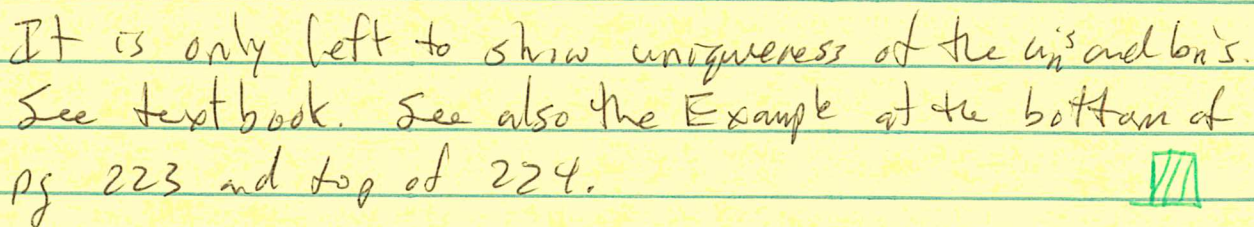 It is only left to show uniqueness of the an's and bn's.
See textbook. See also the Example at the bottom of
pg 223 and top of 224.